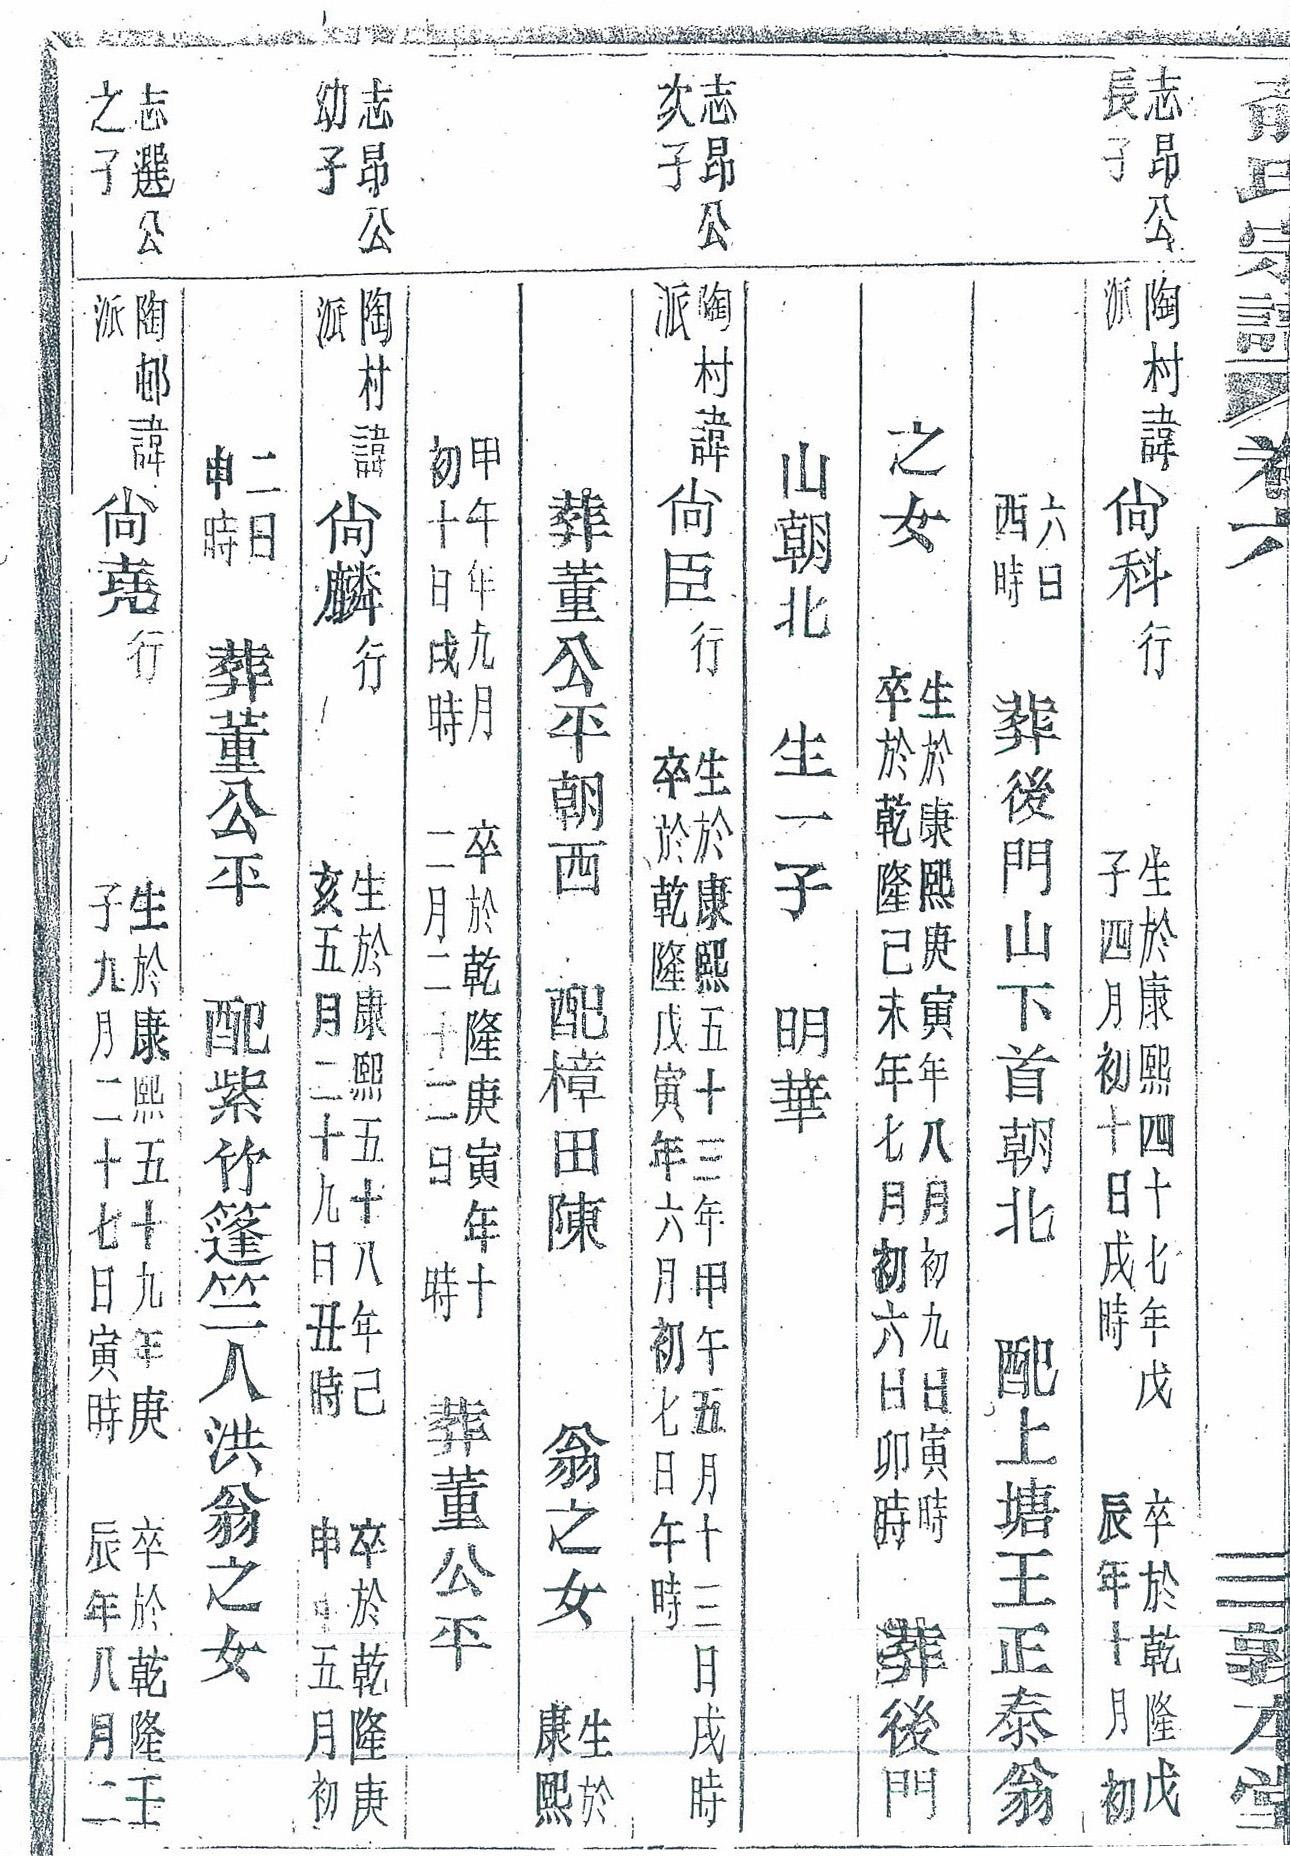 俞氏宗譜 卷六 三 敦本堂
志昂公
長子
陶村諱尚科行
派
生於康熙四十七年戊
子四月初十日戌時
卒於乾隆戊
辰年十月初
六日
酉時
葬後門山下首朝北 配上塘王正泰翁
之女
生於康熙庚寅年八月初九日寅時
卒於乾隆己未年七月初六日卯時
葬後門
山朝北 生一子 明華
志昂公
次子
陶村諱尚臣行
派
生於康熙五十三年甲午五月十三日戌時
卒於乾隆戊寅年六月初七日午時
葬董公平朝西 配樟田陳 翁之女
生於
康熙
甲午年九月
初十日戌時
卒於乾隆庚寅年十
二月二十二日 時
葬董公平
志昂公
幼子
陶村諱尚麟行
派
生於康熙五十八年己
亥五月二十九日丑時
卒於乾隆庚
申年五月初
二日
申時
葬董公平 配紫竹篷竺人洪翁之女
志選公
之子
陶邨諱尚堯行
派
生於康熙五十九年庚
子九月二十七日寅時
卒於乾隆壬
辰年八月二